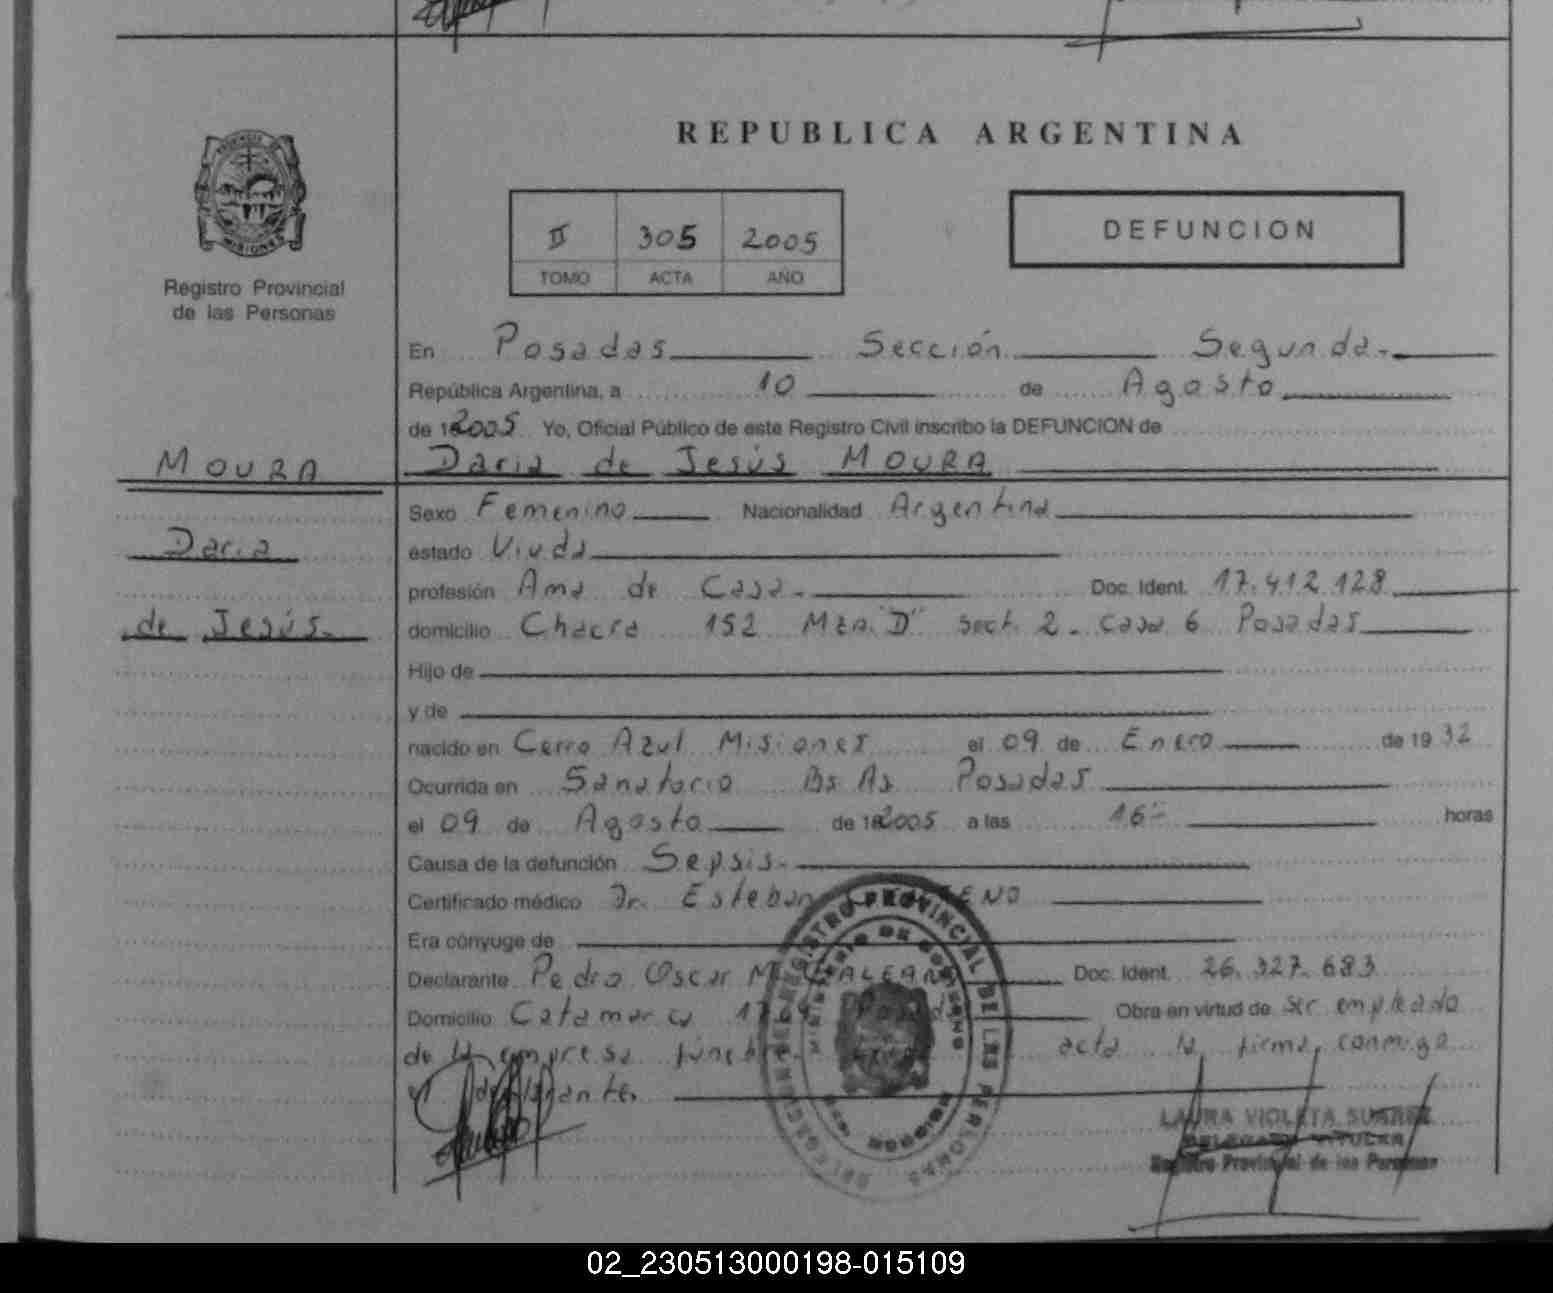 REPUBLICA ARGENTINA
MISIONES
Registro Provincial
de las Personas
II 305 2005
TOMO ACTA AÑO
DEFUNCION
En Posadas Sección Segunda.-
República Argentina, a 10 de Agosto
de 2005 Yo, Oficial Público de este Registro Civil inscribo la DEFUNCION de
Daria de Jesús MOURA
MOURA
Daria
de Jesús.-
Sexo Femenino Nacionalidad Argentina
estado Viuda
profesión Ama de Casa.- Doc. Ident. 17.412.128
domicilio Chacra 152 Mza."D" sect. 2. casa 6 Posadas
Hijo de
y de
nacido en Cerro Azul Misiones el 09 de Enero de 1932
Ocurrida en Sanatorio Bs As Posadas
el 09 de Agosto de 2005 a las 16- horas
Causa de la defunción Sepsis.-
Certificado médico Dr. Esteban
Era cónyuge de
Declarante Pedro Oscar Doc. Ident. 26.327.683
Domicilio Catamarca Obra en virtud de ser empleado
de la empresa fúnebre acta la firma, conmigo
el
REGISTRO PROVINCIAL DE LAS PERSONAS
MINISTERIO DE GOBIERNO
LAURA VIOLETA SUAREZ
DELEGADA TITULAR
Registro Provincial de las Personas
02_230513000198-015109